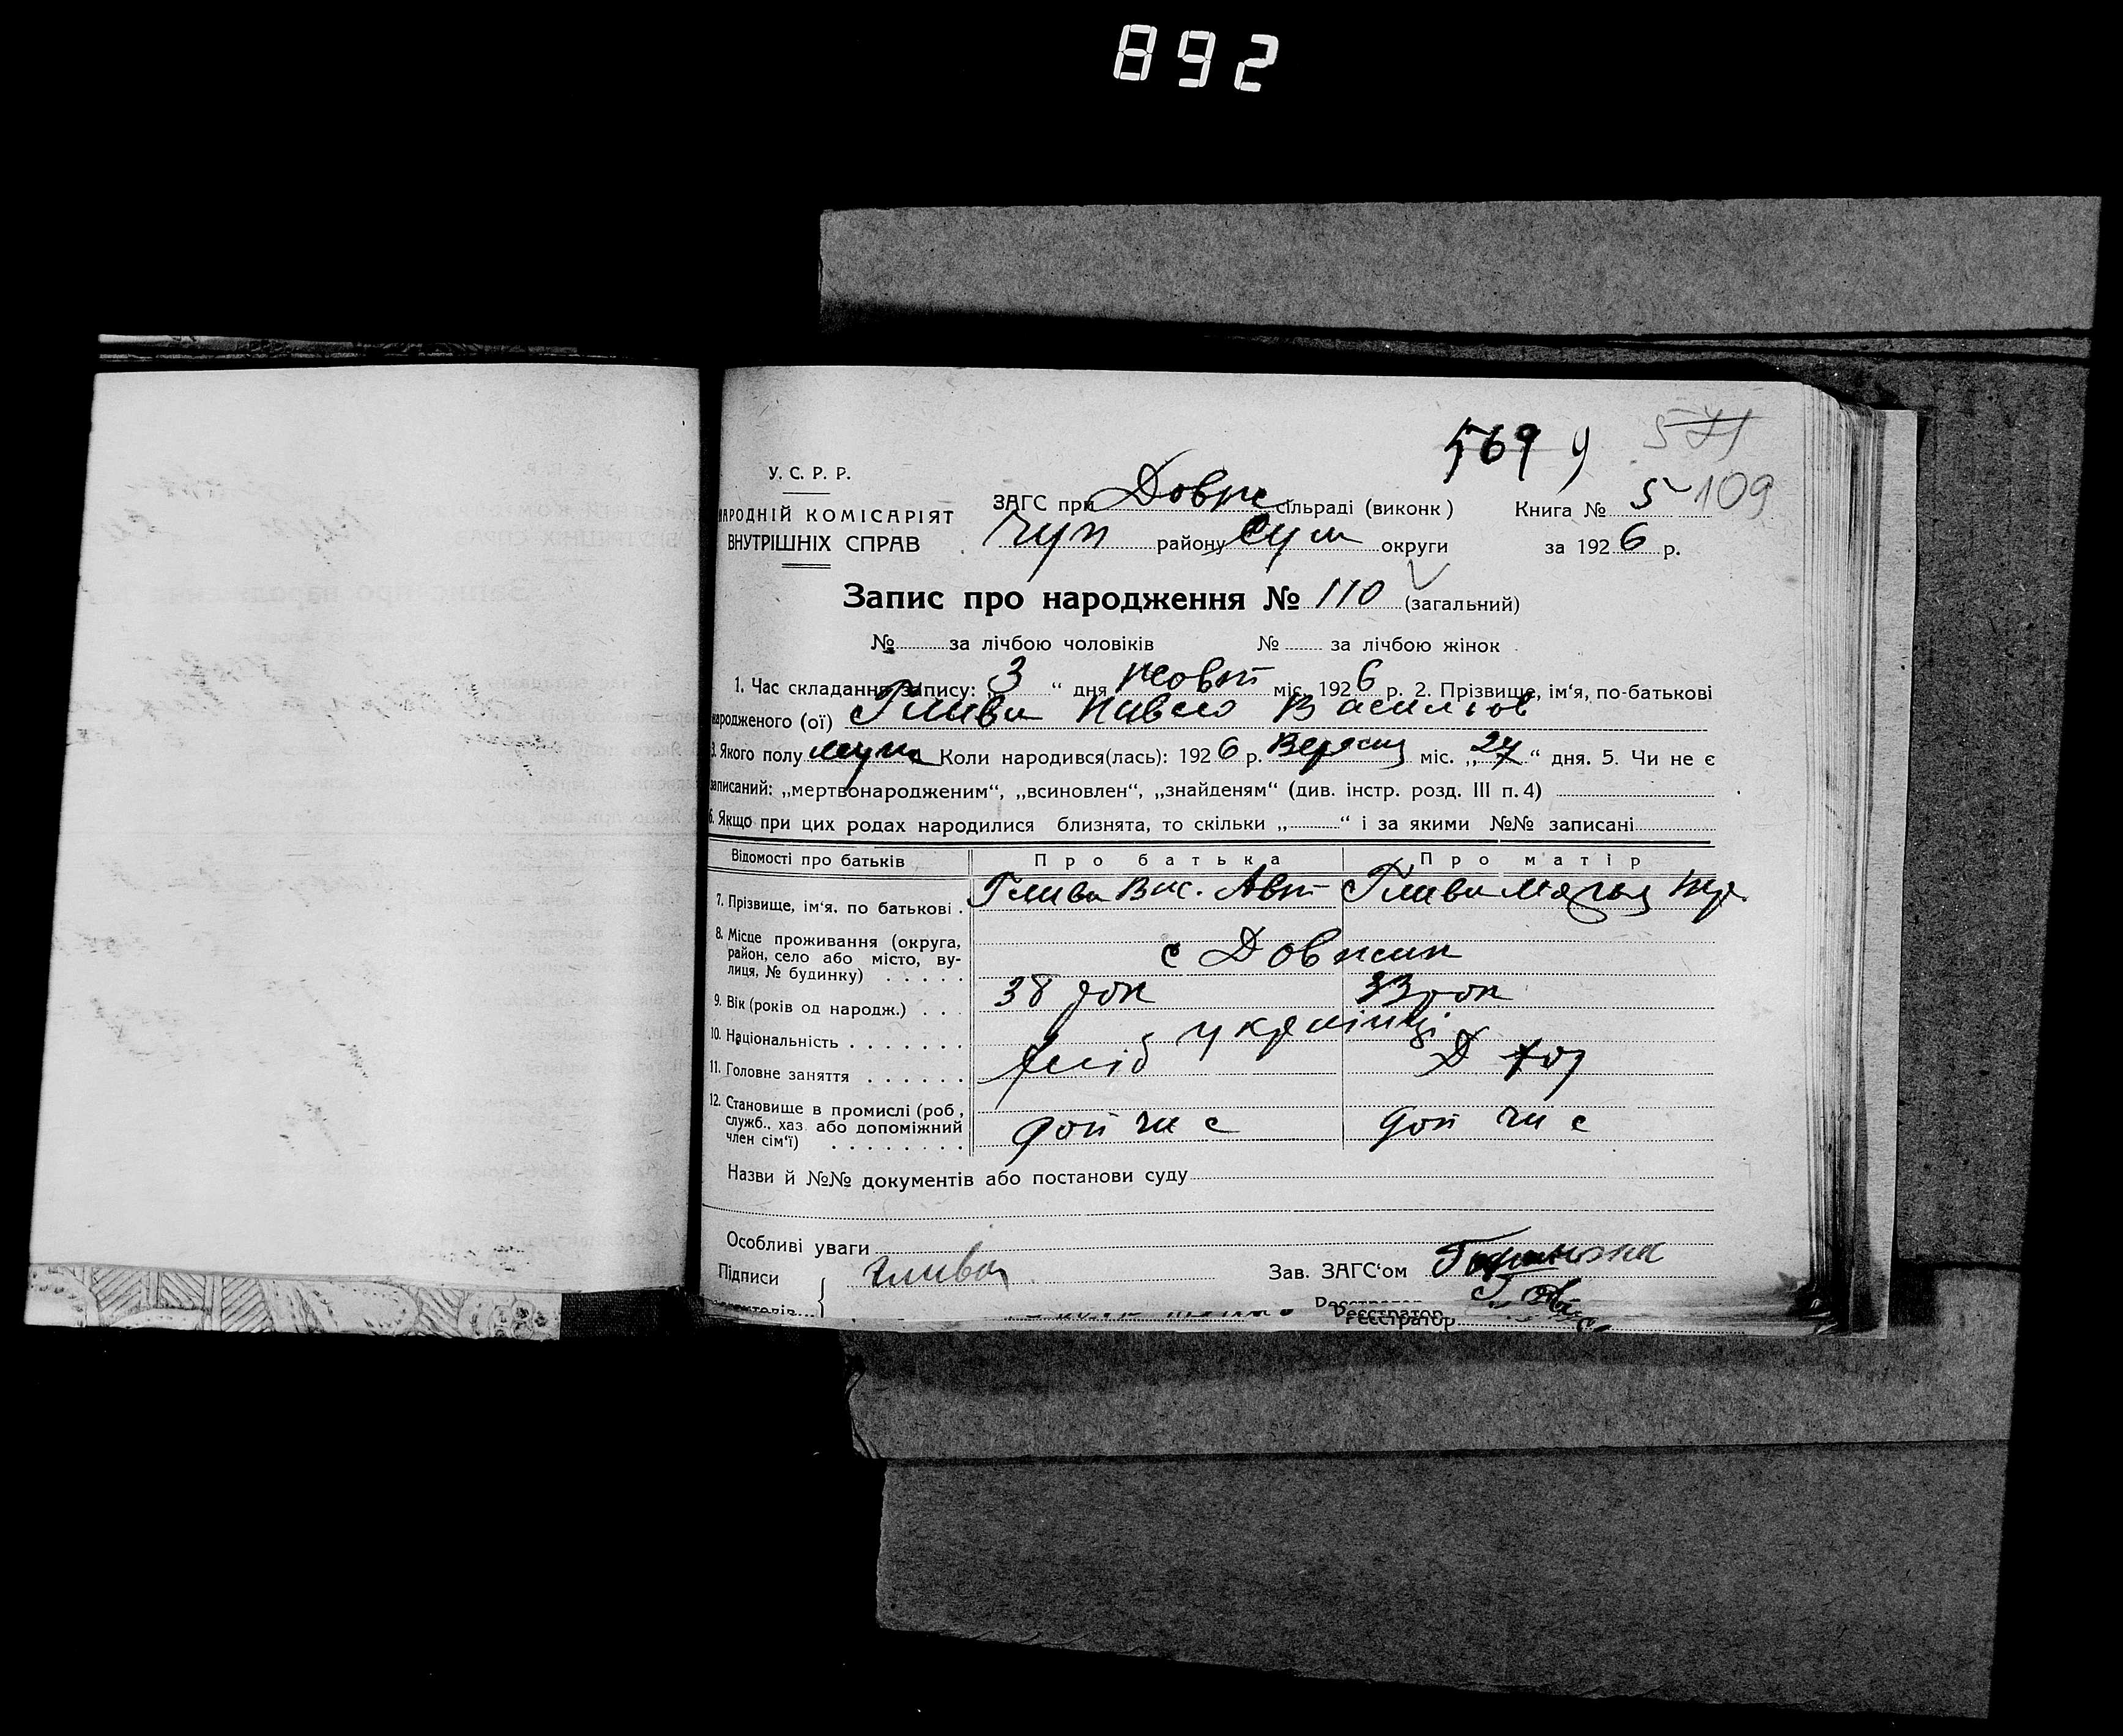 892
569 9 571
У. С. Р. Р.
ЗАГС при Довж сільраді (виконк) Книга № 5 109
НАРОДНІЙ КОМІСАРІЯТ
ВНУТРІШНІХ СПРАВ
Чуп району Сум округи за 1926 р.
Запис про народження № 110 (загальний)
№ за лічбою чоловіків № за лічбою жінок
1. Час складання запису: „3“ дня жовт міс. 1926 р. 2. Прізвище, ім'я, по-батькові
народженого (ої) Глива Павло Васильов
3. Якого полу муж Коли народився(лась): 1926 р. Вересц міс. „27“ дня. 5. Чи не є
записаний: „мертвонародженим“, „всиновлен“, „знайденям“ (див. інстр. розд. III п. 4)
6. Якщо при цих родах народилися близнята, то скільки „ “ і за якими №№ записані
Відомості про батьків Про батька Про матір
7. Прізвище, ім'я, по батькові Глива Вас. Авт Глива
8. Місце проживання (округа,
район, село або місто, ву-
лиця, № будинку) с Довжик
9. Вік (років од народж.) 38 рок 33 рок
10. Національність українці
11. Головне заняття хліб Д
12. Становище в промислі (роб,
служб., хаз. або допоміжний
член сім'ї) доп чл с доп чл с
Назви й №№ документів або постанови суду
Особливі уваги
Підписи Глива Зав. ЗАГС'ом
Реєстратор
Реєстратор